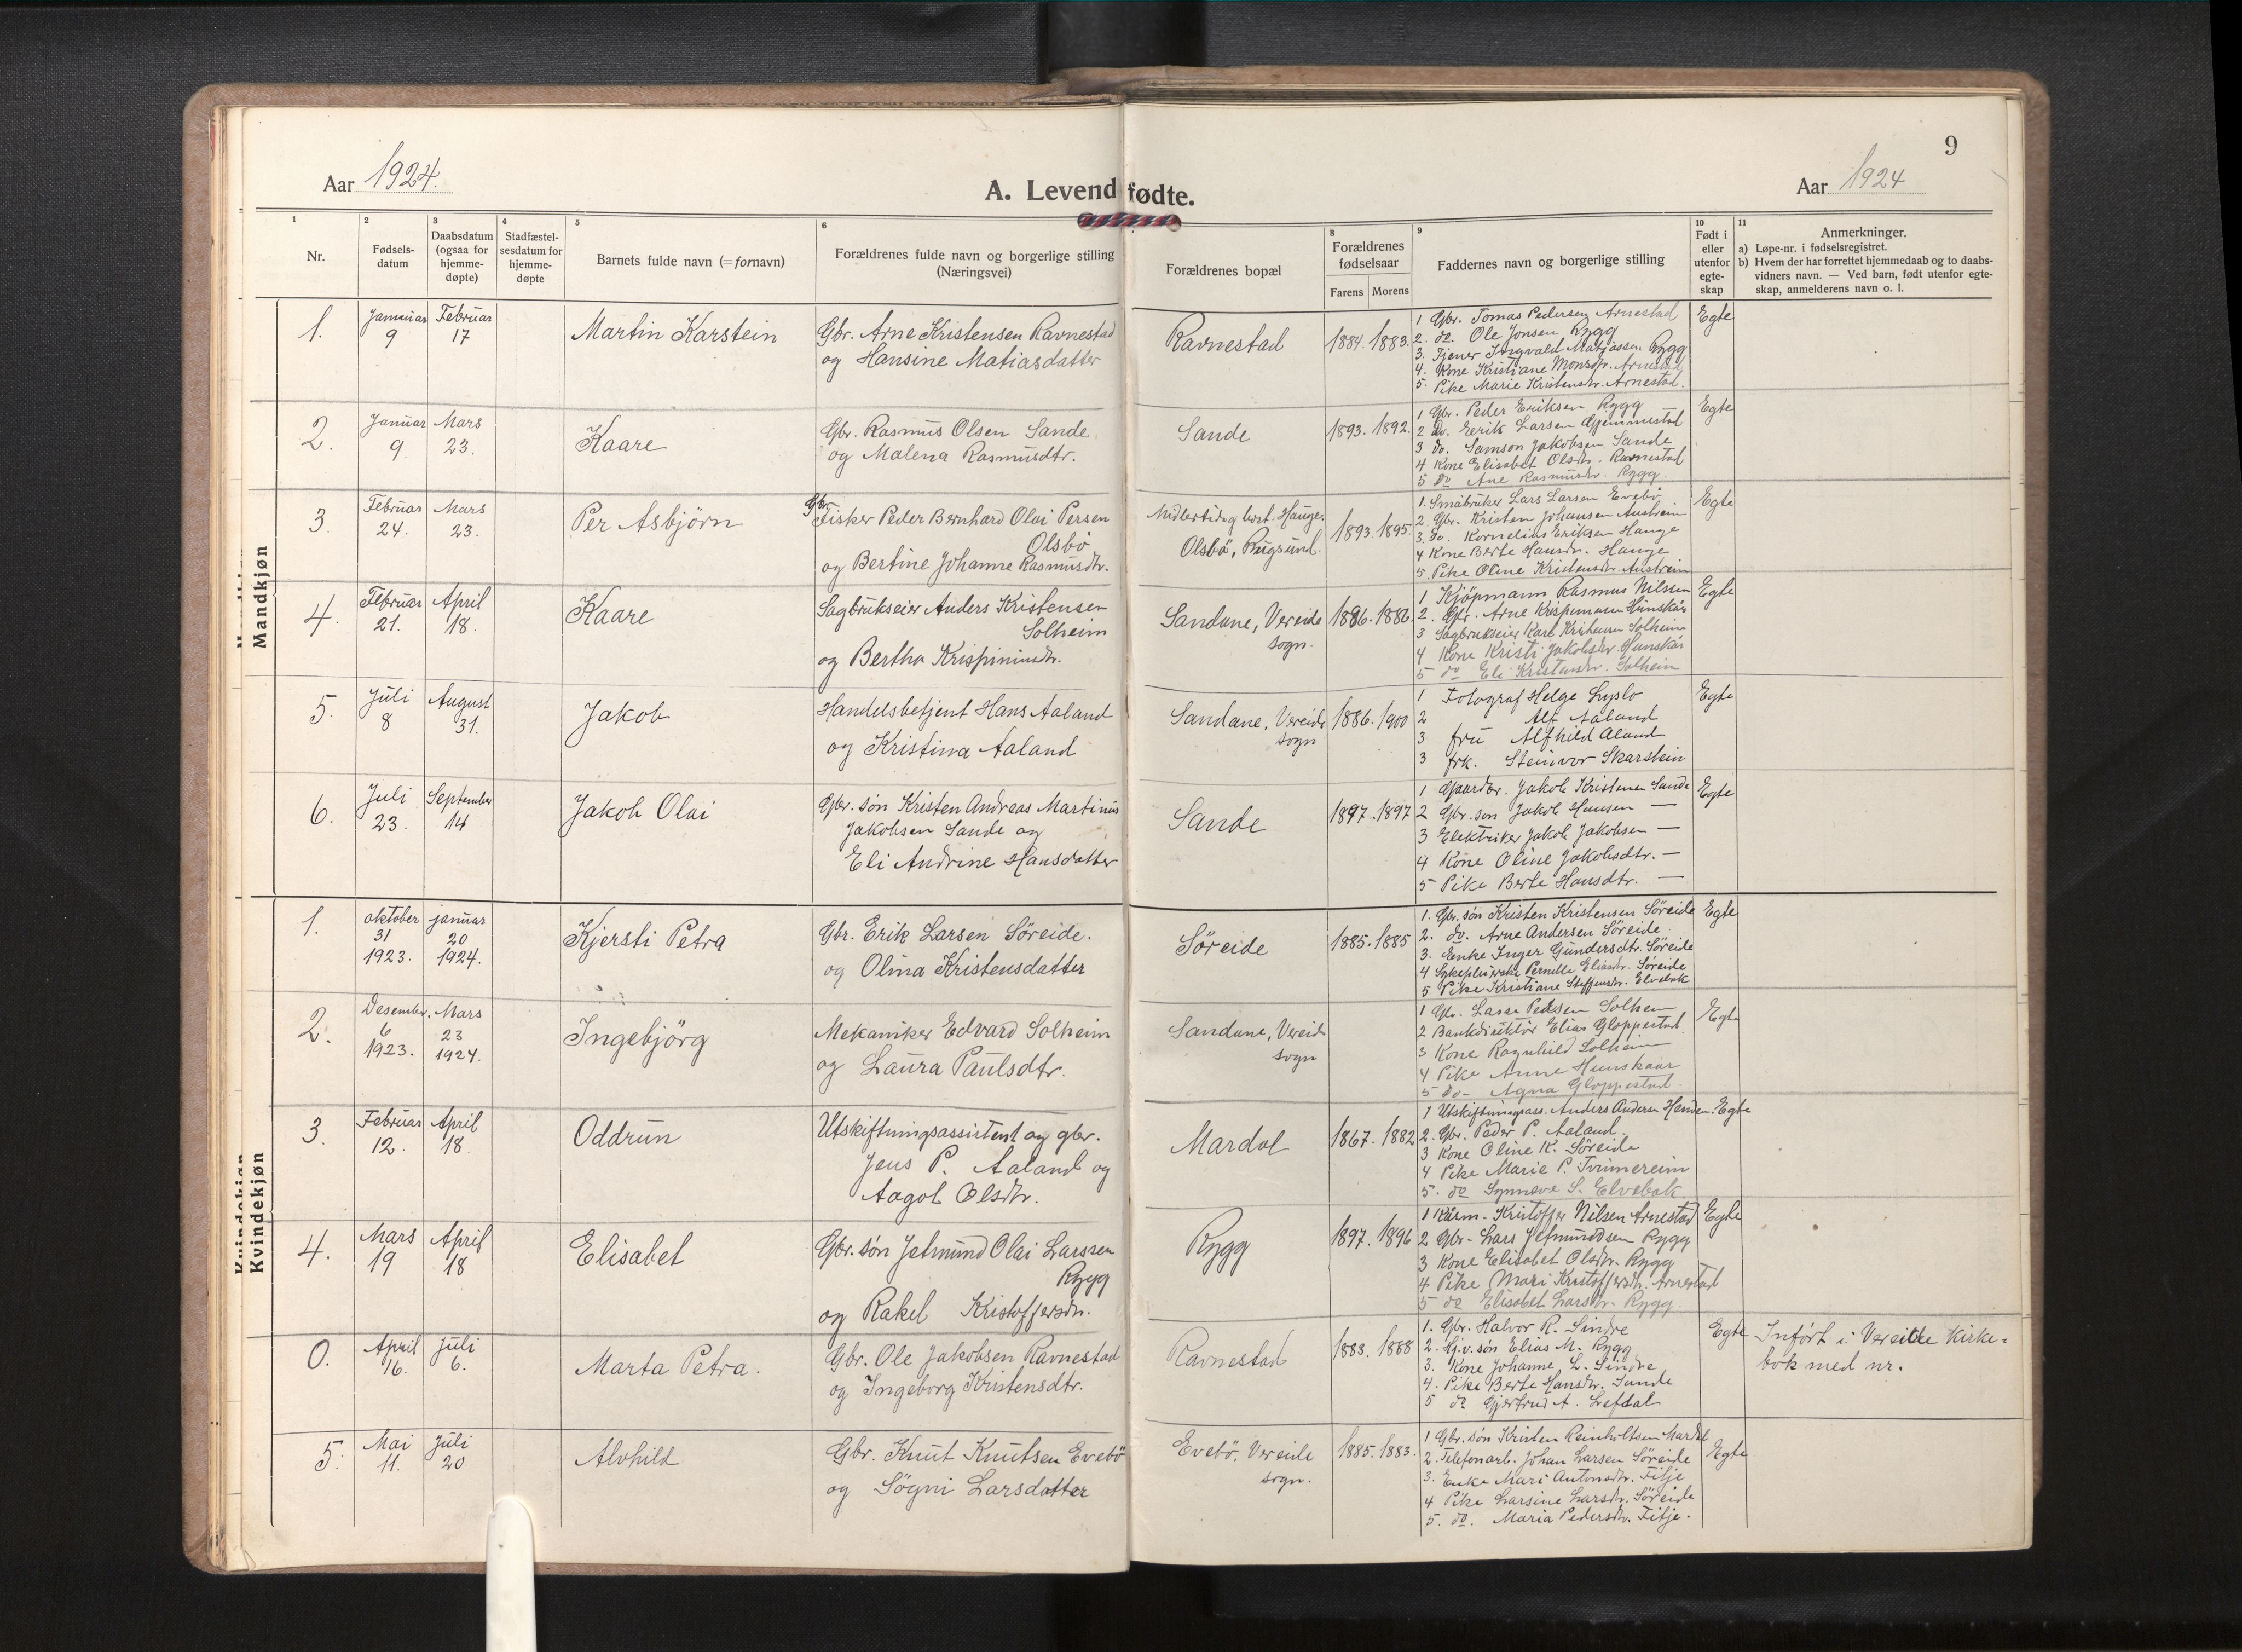 9
Aar 1924.
A. Levendfødte.
Aar 1924
1 2 3 4 5 6 8 9 10 11
Nr.
Fødsels-
datum
Daabsdatum
(ogsaa for
hjemme-
døpte)
Stadfæstel-
sesdatum for
hjemme-
døpte
Barnets fulde navn (= fornavn)
Forældrenes fulde navn og borgerlige stilling
(Næringsvei)
Forældrenes bopæl
Forældrenes
fødselsaar
Farens Morens
Faddernes navn og borgerlige stilling
Født i
eller
utenfor
egte-
skap
Anmerkninger.
a) Løpe-nr. i fødselsregistret.
b) Hvem der har forrettet hjemmedaab og to daabs-
vidners navn. — Ved barn, født utenfor egte-
skap, anmelderens navn o. l.
Mandkjøn
1.
Januar
9
Februar
17
Martin Karstein
Gbr. Arne Kristensen Ravnestad
og Hansine Matiasdatter
Ravnestad
1884. 1883.
1 Gbr. Tomas Pedersen Arnestad
2. do Ole Jonsen Rygg
3. Tjener Ingvald Matiassen Rygg
4. Kone Kristiane Monsdtr. Arnestad
5. Pike Marie Kristensdtr. Arnestad.
Egte
2.
Januar
9
Mars
23.
Kaare
Gbr. Rasmus Olsen Sande
og Malena Rasmusdtr.
Sande
1893. 1892.
1 Gbr. Peder Eriksen Rygg
2 do. Eerik Larsen Gjemmestad
3 do. Samson Jakobsen Sande
4 Kone Elisabet Olsdtr. Ravnestad
5 do Ane Rasmusdtr. Rygg.
Egte
3.
Februar
24.
Mars
23.
Per Asbjörn
Gbr.
Fisker Peder Bernhard Olai Persen
Olsbö
og Bertine Johanne Rasmusdtr.
Midlertidig bort. Hauge.
Olsbö, Rugsund.
1893. 1895.
1. Småbruker Lars Larsen Evebö
2. Gbr. Kristen Johansen Austrein
3. do. Kornelius Eriksen Hauge
4 Kone Berte Hansdtr. Hauge
5. Pike Oline Kristensdtr. Austrein
Egte
4.
Februar
21.
April
18.
Kaare
Sagbrukseier Anders Kristensen
Solheim
og Bertha Krispinusdtr.
Sandane, Vereide
sogn.
1886. 1886.
1 Kjöpmann Rasmus Nilssen
2. Gbr. Arne Krispinusen Hunskår
3 Sagbrukseier Karl Kristensen Solheim
4 Kone Kristi Jakobsdtr. Hunskår
5 do Eli Kristensdtr. Solheim
Egte
5.
Juli
8
August
31.
Jakob
Handelsbetjent Hans Aaland
og Kristina Aaland
Sandane, Vereide
sogn
1886. 1900
1 Fotograf Helge Lyslo
2 Alf Aaland
3 fru Alfhild Aland
3 frk. Steinvor Skarstein
Egte
6.
Juli
23.
September
14
Jakob Olai
Gbr. søn Kristen Andreas Martinus
Jakobsen Sande og
Eli Andrine Hansdatter
Sande
1897. 1897
1 Gaardbr. Jakob Kristensen Sande
2 Gbr. søn Jakob Hansen —
3 Elektriker Jakob Jakobsen —
4 Kone Oline Jakobsdtr. —
5 Pike Berte Hansdtr. —
Egte
Kvindekjøn
1.
oktober
31
1923.
januar
20
1924.
Kjersti Petra
Gbr. Erik Larsen Søreide.
og Olina Kristensdatter
Søreide
1885. 1885
1. Gbr. søn Kristen Kristensen Søreide
2. do. Arne Andersen Søreide
3. Enke Inger Gundersdtr. Søreide
4 Sykepleierske Pernille Eliasdtr. Søreide
5 Pike Kristiane Steffensdtr. Elvebak
Egte
2.
Desember.
6
1923.
Mars
23
1924.
Ingebjörg
Mekaniker Edvard Solheim
og Laura Paulsdtr.
Sandane, Vereide
sogn
1 Gbr. Lasse Pedersen Solheim
2 Bankdirektör Elias Gloppestad.
3 Kone Ragnhild Solheim
4 Pike Anne Hunskaar
5 do - Agna Gloppestad.
Egte
3.
Februar
12.
April
18
Oddrun
Utskiftningsassistent og gbr.
Jens P. Aaland og
Aagot Olsdtr.
Mardal
1867. 1882
1 Utskiftningsass. Anders Andersen Henden.
2. Gbr. Peder P. Aaland.
3 Kone Oline K. Søreide
4 Pike Marie P. Tvinnereim
5. do Synneve S. Elvebak
Egte
4.
Mars
19
April
18
Elisabet
Gbr. søn Jetmund Olai Larssen
Rygg
og Rakel Kristoffersdtr.
Rygg
1897. 1896
1 Kårm. Kristoffer Nilsen Arnestad
2 Gbr. Lars Jetmundsen Rygg
3 Kone Elisabet Olsdtr. Rygg
4 Pike Mari Kristoffersdtr. Arnestad
5 do Elisabet Larsdtr. Rygg
Egte
0.
April
16.
Juli
6.
Marta Petra.
Gbr. Ole Jakobsen Ravnestad
og Ingeborg Kristensdtr.
Ravnestad
1883. 1888
1. Gbr. Halvor R. Sindre
2. Gj.v. søn Elias M. Rygg
3. Kone Johanne L. Sindre
4. Pike Berte Hansdtr. Sande
5 do Gjertrud A. Leftal
Egte
Inført i Vereide Kirke-
bok med nr.
5.
Mai
11.
Juli
20
Alvhild
Gbr. Knut Knutsen Evebö
og Sögni Larsdatter
Evebö, Vereide
sogn.
1885. 1883.
1 Gbr. søn Kristen Reinholtsen Mardal
2. Telefonarb. Johan Larsen Søreide
3. Enke Mari Antonsdtr. Fitje
4 Pike Larsine Larsdtr. Søreide
5. do. Maria Pedersdtr. Fitje.
Egte